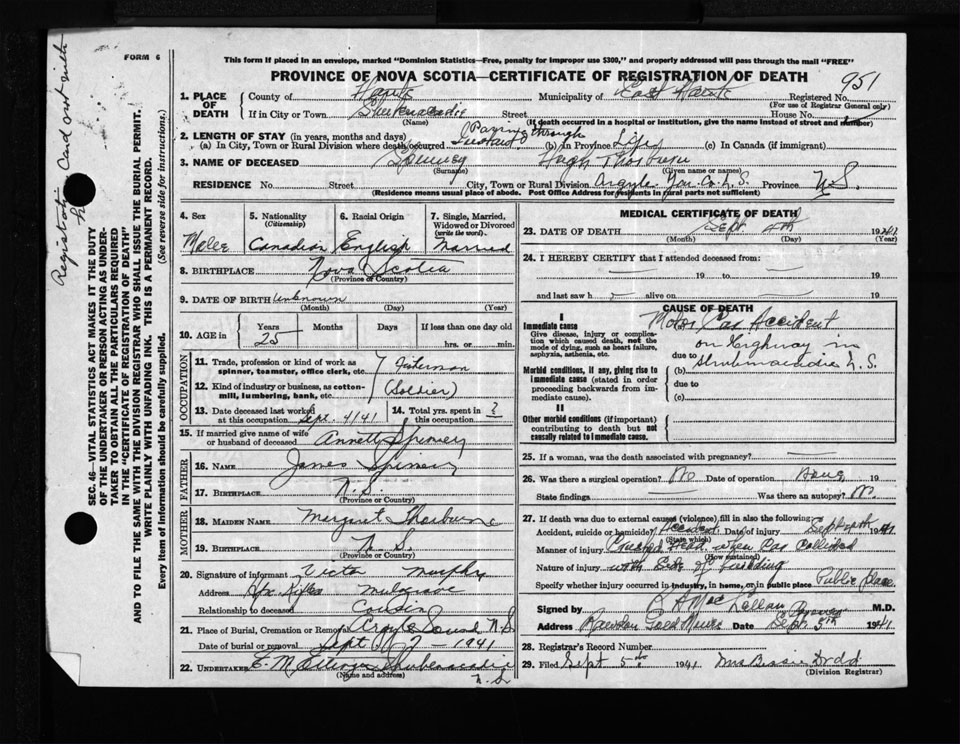 Registration Card sent with
FORM 6
This form if placed in an envelope, marked "Dominion Statistics—Free, penalty for improper use $300," and properly addressed will pass through the mail "FREE"
PROVINCE OF NOVA SCOTIA—CERTIFICATE OF REGISTRATION OF DEATH
951
1. PLACE OF DEATH
County of Hants Municipality of East Hants Registered No.
(For use of Registrar General only)
If in City or Town Shubenacadie Street House No.
(Name) (If death occurred in a hospital or institution, give the name instead of street and number)
2. LENGTH OF STAY (in years, months and days) Passing through
(a) In City, Town or Rural Division where death occurred Instant (b) in Province Life (c) In Canada (if immigrant)
3. NAME OF DECEASED Spinney Hugh Thorburn
(Surname) (Given name or names)
RESIDENCE No. Street City, Town or Rural Division Argyle Yar. Co. N.S. Province N.S.
(Residence means usual place of abode. Post Office Address for residents in rural parts not sufficient)
SEC. 46—VITAL STATISTICS ACT MAKES IT THE DUTY
OF THE UNDERTAKER OR PERSON ACTING AS UNDER-
TAKER TO OBTAIN ALL THE PARTICULARS REQUIRED
IN THE "CERTIFICATE OF REGISTRATION OF DEATH"
AND TO FILE THE SAME WITH THE DIVISION REGISTRAR WHO SHALL ISSUE THE BURIAL PERMIT.
WRITE PLAINLY WITH UNFADING INK. THIS IS A PERMANENT RECORD.
Every item of information should be carefully supplied. (See reverse side for instructions.)
4. Sex
Male
5. Nationality
(Citizenship)
Canadian
6. Racial Origin
English
7. Single, Married,
Widowed or Divorced
(write the word)
Married
8. BIRTHPLACE Nova Scotia
(Province or Country)
9. DATE OF BIRTH unknown
(Month) (Day) (Year)
10. AGE in Years Months Days If less than one day old
25 hrs. or min.
OCCUPATION
11. Trade, profession or kind of work as Fisherman
spinner, teamster, office clerk, etc.
12. Kind of industry or business, as cotton- (Soldier)
mill, lumbering, bank, etc.
13. Date deceased last worked
at this occupation Sept. 4/41
14. Total yrs. spent in ?
this occupation
15. If married give name of wife
or husband of deceased Annett Spinney
FATHER
16. NAME James Spinney
17. BIRTHPLACE N.S.
(Province or Country)
MOTHER
18. MAIDEN NAME Margaret Thorburne
19. BIRTHPLACE N.S.
(Province or Country)
20. Signature of informant Victor Murphy
Address Mulgrave
Relationship to deceased Cousin
21. Place of Burial, Cremation or Removal Argyle Sound N.S.
Date of burial or removal Sept 7 - 1941
22. UNDERTAKER E. M. Shubenacadie
(Name and address) N.S.
MEDICAL CERTIFICATE OF DEATH
23. DATE OF DEATH Sept 4th 1941
(Month) (Day) (Year)
24. I HEREBY CERTIFY that I attended deceased from:
19 to 19
and last saw h alive on 19
CAUSE OF DEATH
I
Immediate cause Motor Car Accident
Give disease, injury or complica-
tion which caused death, not the
mode of dying, such as heart failure,
asphyxia, asthenia, etc.
on Highway in
due to
Morbid conditions, if any, giving rise to
immediate cause (stated in order
proceeding backwards from im-
mediate cause).
(b) Shubenacadie N.S.
due to
(c)
II
Other morbid conditions (if important)
contributing to death but not
causally related to immediate cause.
25. If a woman, was the death associated with pregnancy?
26. Was there a surgical operation? No Date of operation 19
State findings Was there an autopsy? No
27. If death was due to external causes (violence) fill in also the following
Accident, suicide or homicide? Accident Date of injury Sept 4th 1941
(State which)
Manner of injury Crushed Head when Car Collided
(How sustained)
Nature of injury with Side of building
Specify whether injury occurred in industry, in home, or in public place Public place
Signed by MacLellan M.D.
Address Rawdon Gold Mines Date Sept 5th 1941
28. Registrar's Record Number
29. Filed Sept 5 1941 Mrs Bessie Dodd
(Division Registrar)